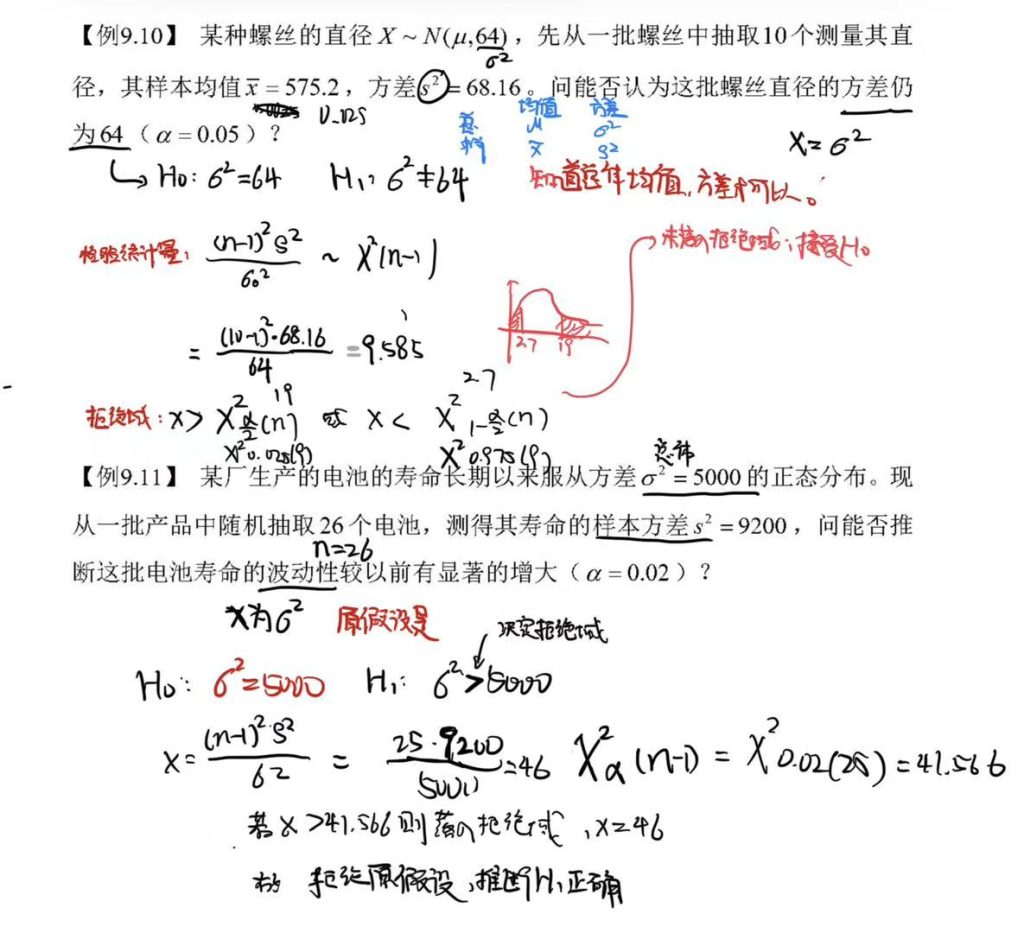 【例9.10】 某种螺丝的直径 X ~ N(μ,64)，先从一批螺丝中抽取10个测量其直
σ²
径，其样本均值 x̄ = 575.2，方差 s² = 68.16。问能否认为这批螺丝直径的方差仍
0.025
均值 方差
为64（α = 0.05）？
总 μ σ²
样 x̄ s²
X=σ²
H₀: σ²=64 H₁: σ²≠64
知道总体均值，方差才可以。
检验统计量: (n-1)²s² / σ₀² ~ X²(n-1)
未落入拒绝域，接受H₀
= (10-1)²·68.16 / 64 = 9.585
2.7 19
19 2.7
拒绝域: X > X²α/2(n) 或 X < X²1-α/2(n)
X²0.025(9) X²0.975(9)
总体
【例9.11】 某厂生产的电池的寿命长期以来服从方差 σ² = 5000 的正态分布。现
从一批产品中随机抽取26个电池，测得其寿命的样本方差 s² = 9200，问能否推
n=26
断这批电池寿命的波动性较以前有显著的增大（α = 0.02）？
X为σ² 原假设是
决定拒绝域
H₀: σ²=5000 H₁: σ²>5000
X= (n-1)²·S² / σ² = 25·9200 / 5000 =46 X²α(n-1) = X²0.02(25) = 41.566
若X>41.566则落入拒绝域，X=46
故 拒绝原假设，推断H₁正确